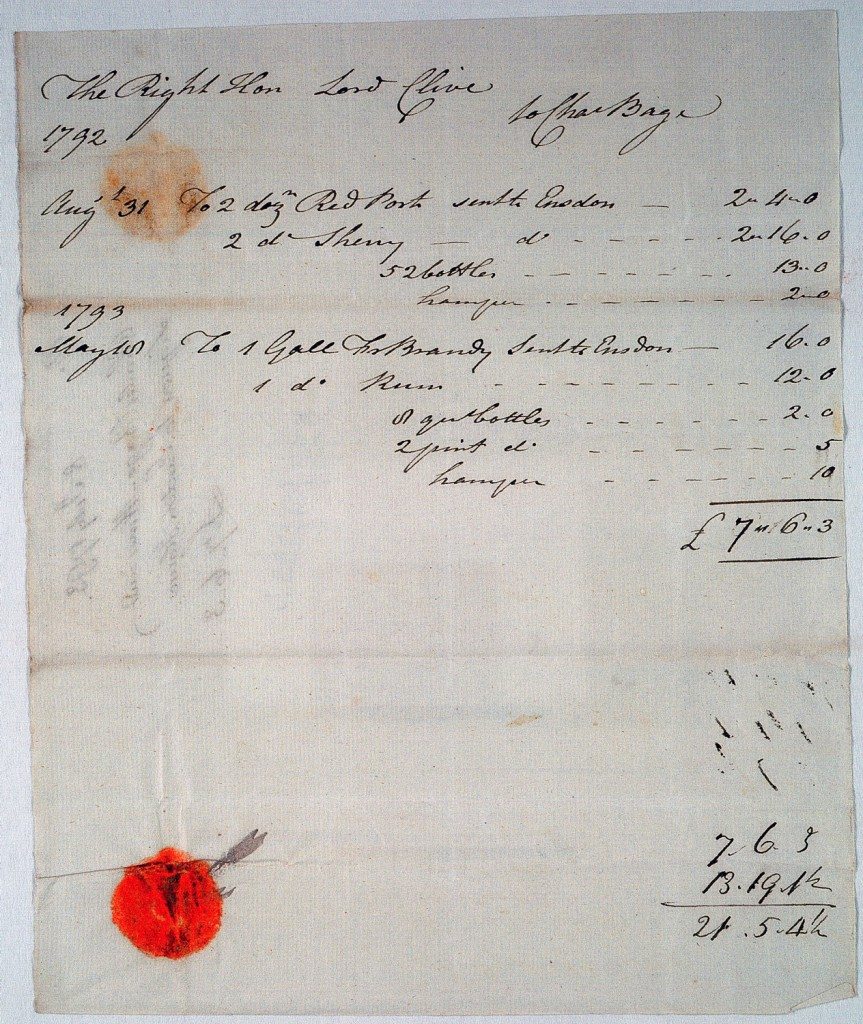 The Right Hon Lord Clive
to Chas Bage
1792
Augt 31 To 2 dozn Red Port sent to Ensdon — 2 " 4 " 0
2 do Sherry — do - - - - - 2 " 16 " 0
52 bottles - - - - - - - 13 " 0
hamper - - - - - - - - 2 " 0
1793
May 18 To 1 Gall Fr Brandy Sent to Ensdon — 16 " 0
1 do Rum - - - - - - - - - 12 " 0
8 qut bottles - - - - - - 2 " 0
2 pint do - - - - - - - 5
hamper - - - - - - 10
£ 7 " 6 " 3
7 . 6 . 3
13 . 19 . 1½
21 . 5 . 4½